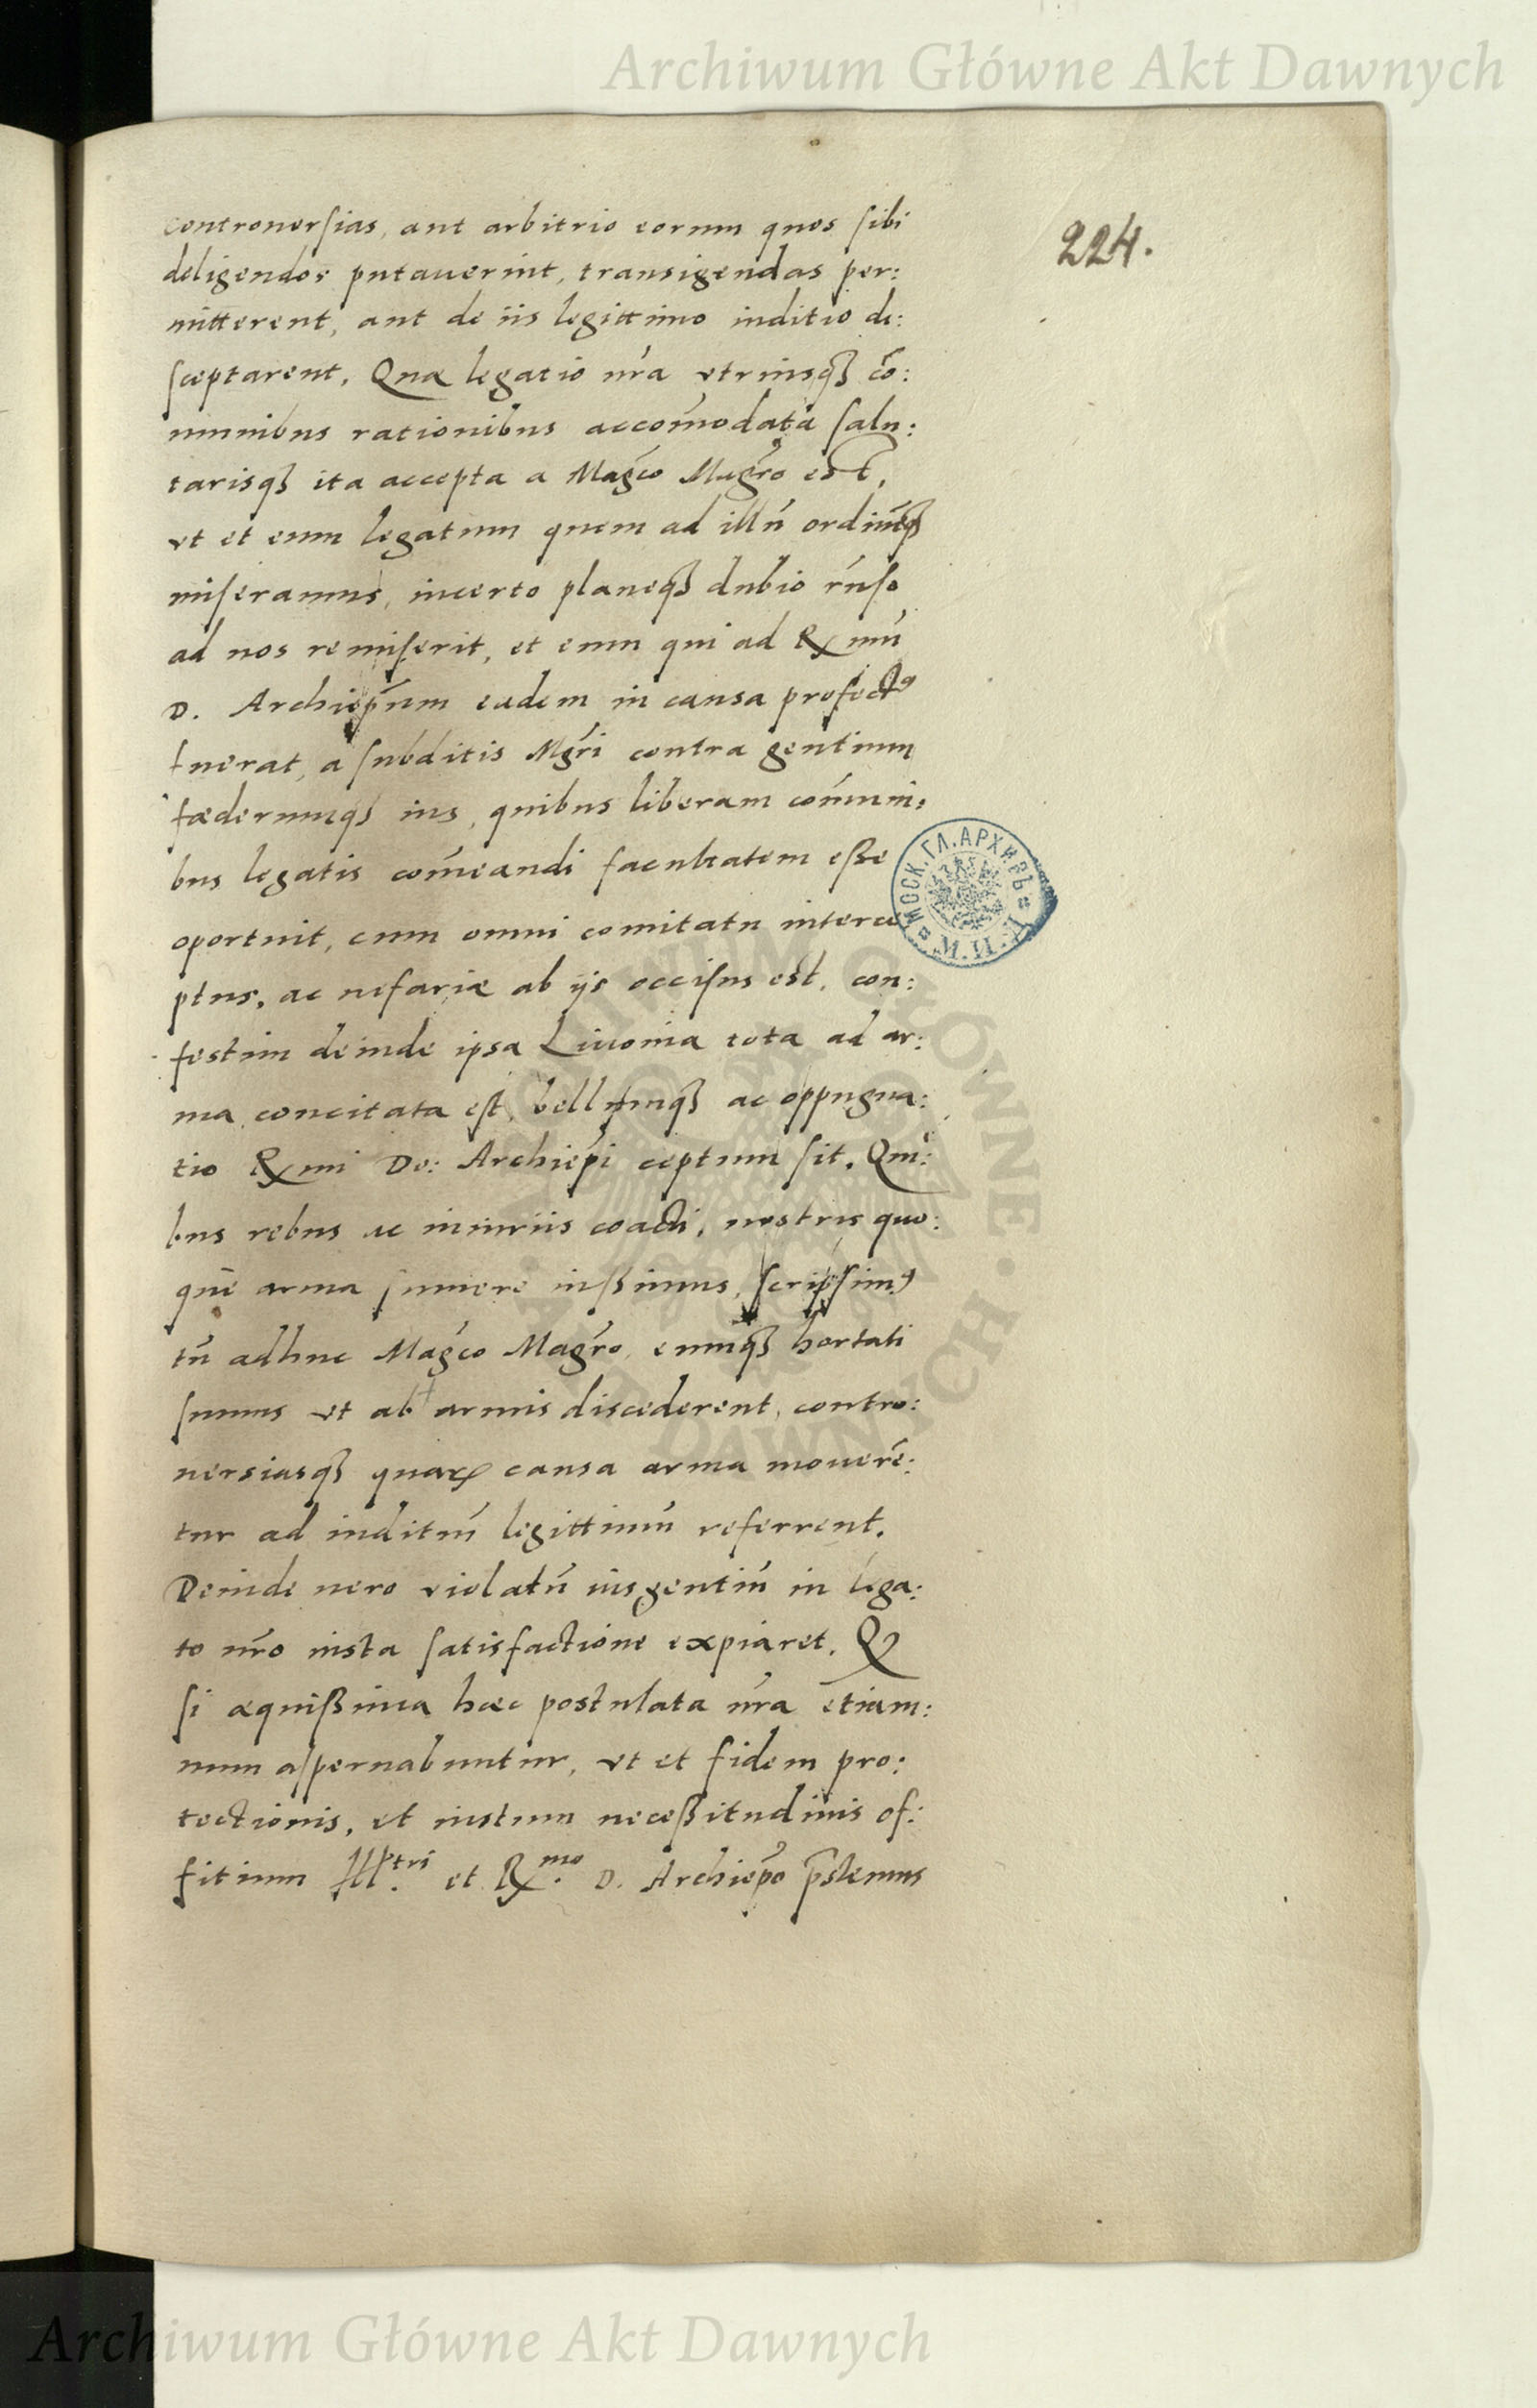 Archiwum Główne Akt Dawnych
224.
controuersias, aut arbitrio eorum quos sibi
deligendos putauerint, transigendas per:
mitterent, aut de iis legittimo iuditio di:
sceptarent. Quæ legatio nr̃a vtriusq; cõ:
munibus rationibus accom̃odata salu:
tarisq; ita accepta a Mag̃co Mag̃ro est,
vt et eum legatum quem ad illũ ordinẽq;
miseramus, incerto planeq; dubio rñso
ad nos remiserit, et eum qui ad Rmũ
D. Archiep̃um eadem in causa profectꝰ
fuerat, a subditis Mg̃ri contra gentium
fœderumq; ius, quibus liberam com̃uni:
bus legatis com̃eandi facultatem eße
oportuit, cum omni comitatu interce
ptus, ac nefariæ ab ijs occisus est, con:
festim deinde ipsa Liuonia tota ad ar:
ma concitata est, bellumq; ac oppugna:
tio Rmi Do: Archiep̃i ceptum sit. Qui:
bus rebus ac iniuriis coacti, nostris quo:
que arma sumere iußimus, scripsimꝰ
tñ adhuc Mag̃co Mag̃ro, eumq; hortati
sumus vt ab armis discederent, contro:
uersiasq; quaꝝ causa arma mouerẽ:
tur ad iuditiũ legittimũ referrent.
Deinde uero violatũ ius gentiũ in lega:
to nr̃o iusta satisfactione expiaret. Qꝫ
si æquißima hæc postulata nr̃a etiam:
num aspernabuntur, vt et fidem pro:
tectionis, et iustum neceßitudinis of:
fitium Ill.ᵗʳⁱ et R.ᵐᵒ D. Archiep̃o p̃stemus
МОСК. ГЛ. АРХИВЪ
М. И. Д.
ARCHIWUM GŁÓWNE · AKT DAWNYCH ·
Archiwum Główne Akt Dawnych